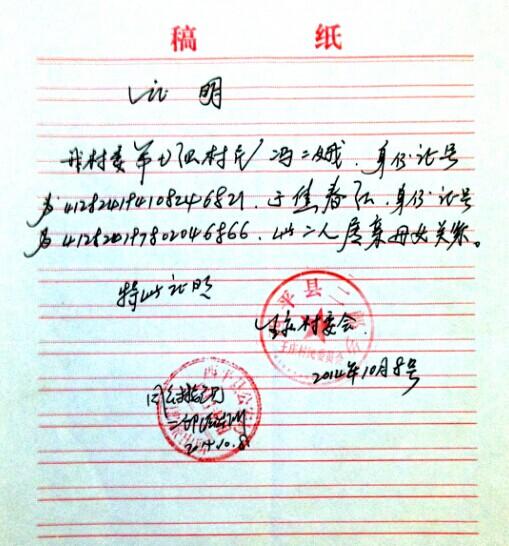 稿纸
证明
我村委第七组村民冯二娥、身份证号
为412824194108246821、于焦春红、身份证号
为412824197802046866、此二人属亲母女关系。
特此证明
平县二
王庄村委会
王庄村民委员会
2014年10月8号
2014.10.8